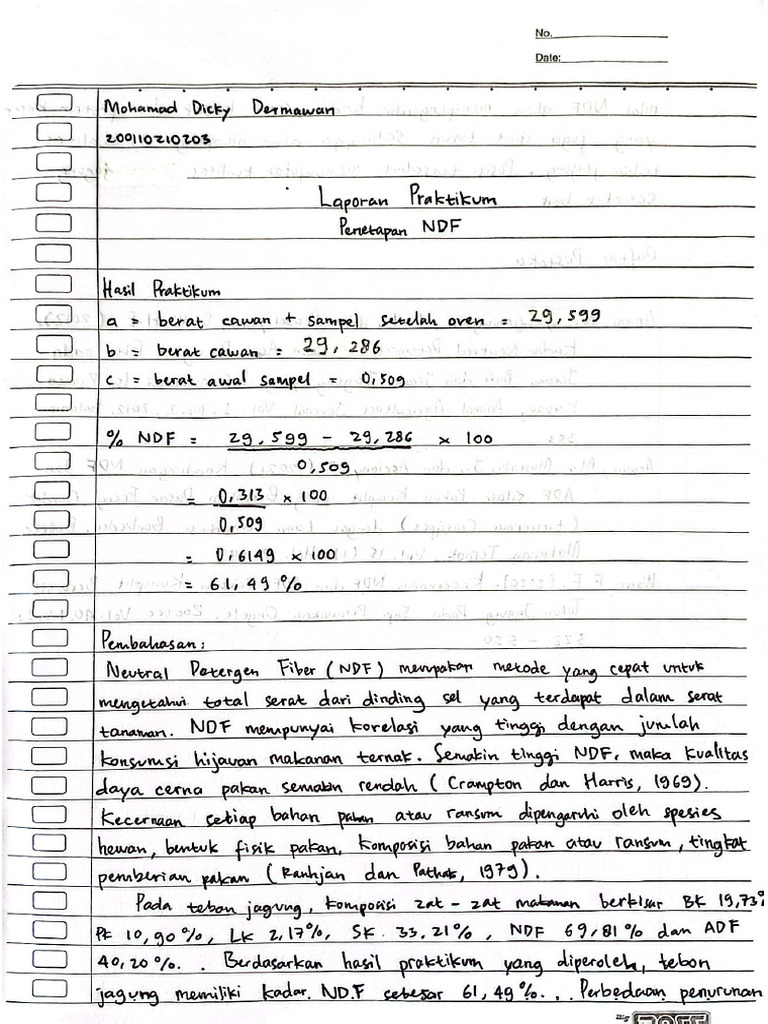 No.
Date:
Mohamad Dicky Dermawan
200110210203
Laporan Praktikum
Penetapan NDF
Hasil Praktikum
a = berat cawan + sampel setelah oven = 29,599
b = berat cawan = 29,286
c = berat awal sampel = 0,509
% NDF = 29,599 - 29,286 x 100
0,509
= 0,313 x 100
0,509
= 0,6149 x 100
= 61,49 %
Pembahasan:
Neutral Detergen Fiber (NDF) merupakan metode yang cepat untuk
mengetahui total serat dari dinding sel yang terdapat dalam serat
tanaman. NDF mempunyai korelasi yang tinggi dengan jumlah
konsumsi hijauan makanan ternak. Semakin tinggi NDF, maka kualitas
daya cerna pakan semakin rendah (Crampton dan Harris, 1969).
Kecernaan setiap bahan pakan atau ransum dipengaruhi oleh spesies
hewan, bentuk fisik pakan, komposisi bahan pakan atau ransum, tingkat
pemberian pakan (Ranhjan dan Pathak, 1979).
Pada tebon jagung, komposisi zat-zat makanan berkisar BK 19,73%
PK 10,90%, LK 2,17%, SK 33,21%, NDF 69,81% dan ADF
40,20%.. Berdasarkan hasil praktikum yang diperoleh, tebon
jagung memiliki kadar. NDF sebesar 61,49%... Perbedaan penurunan